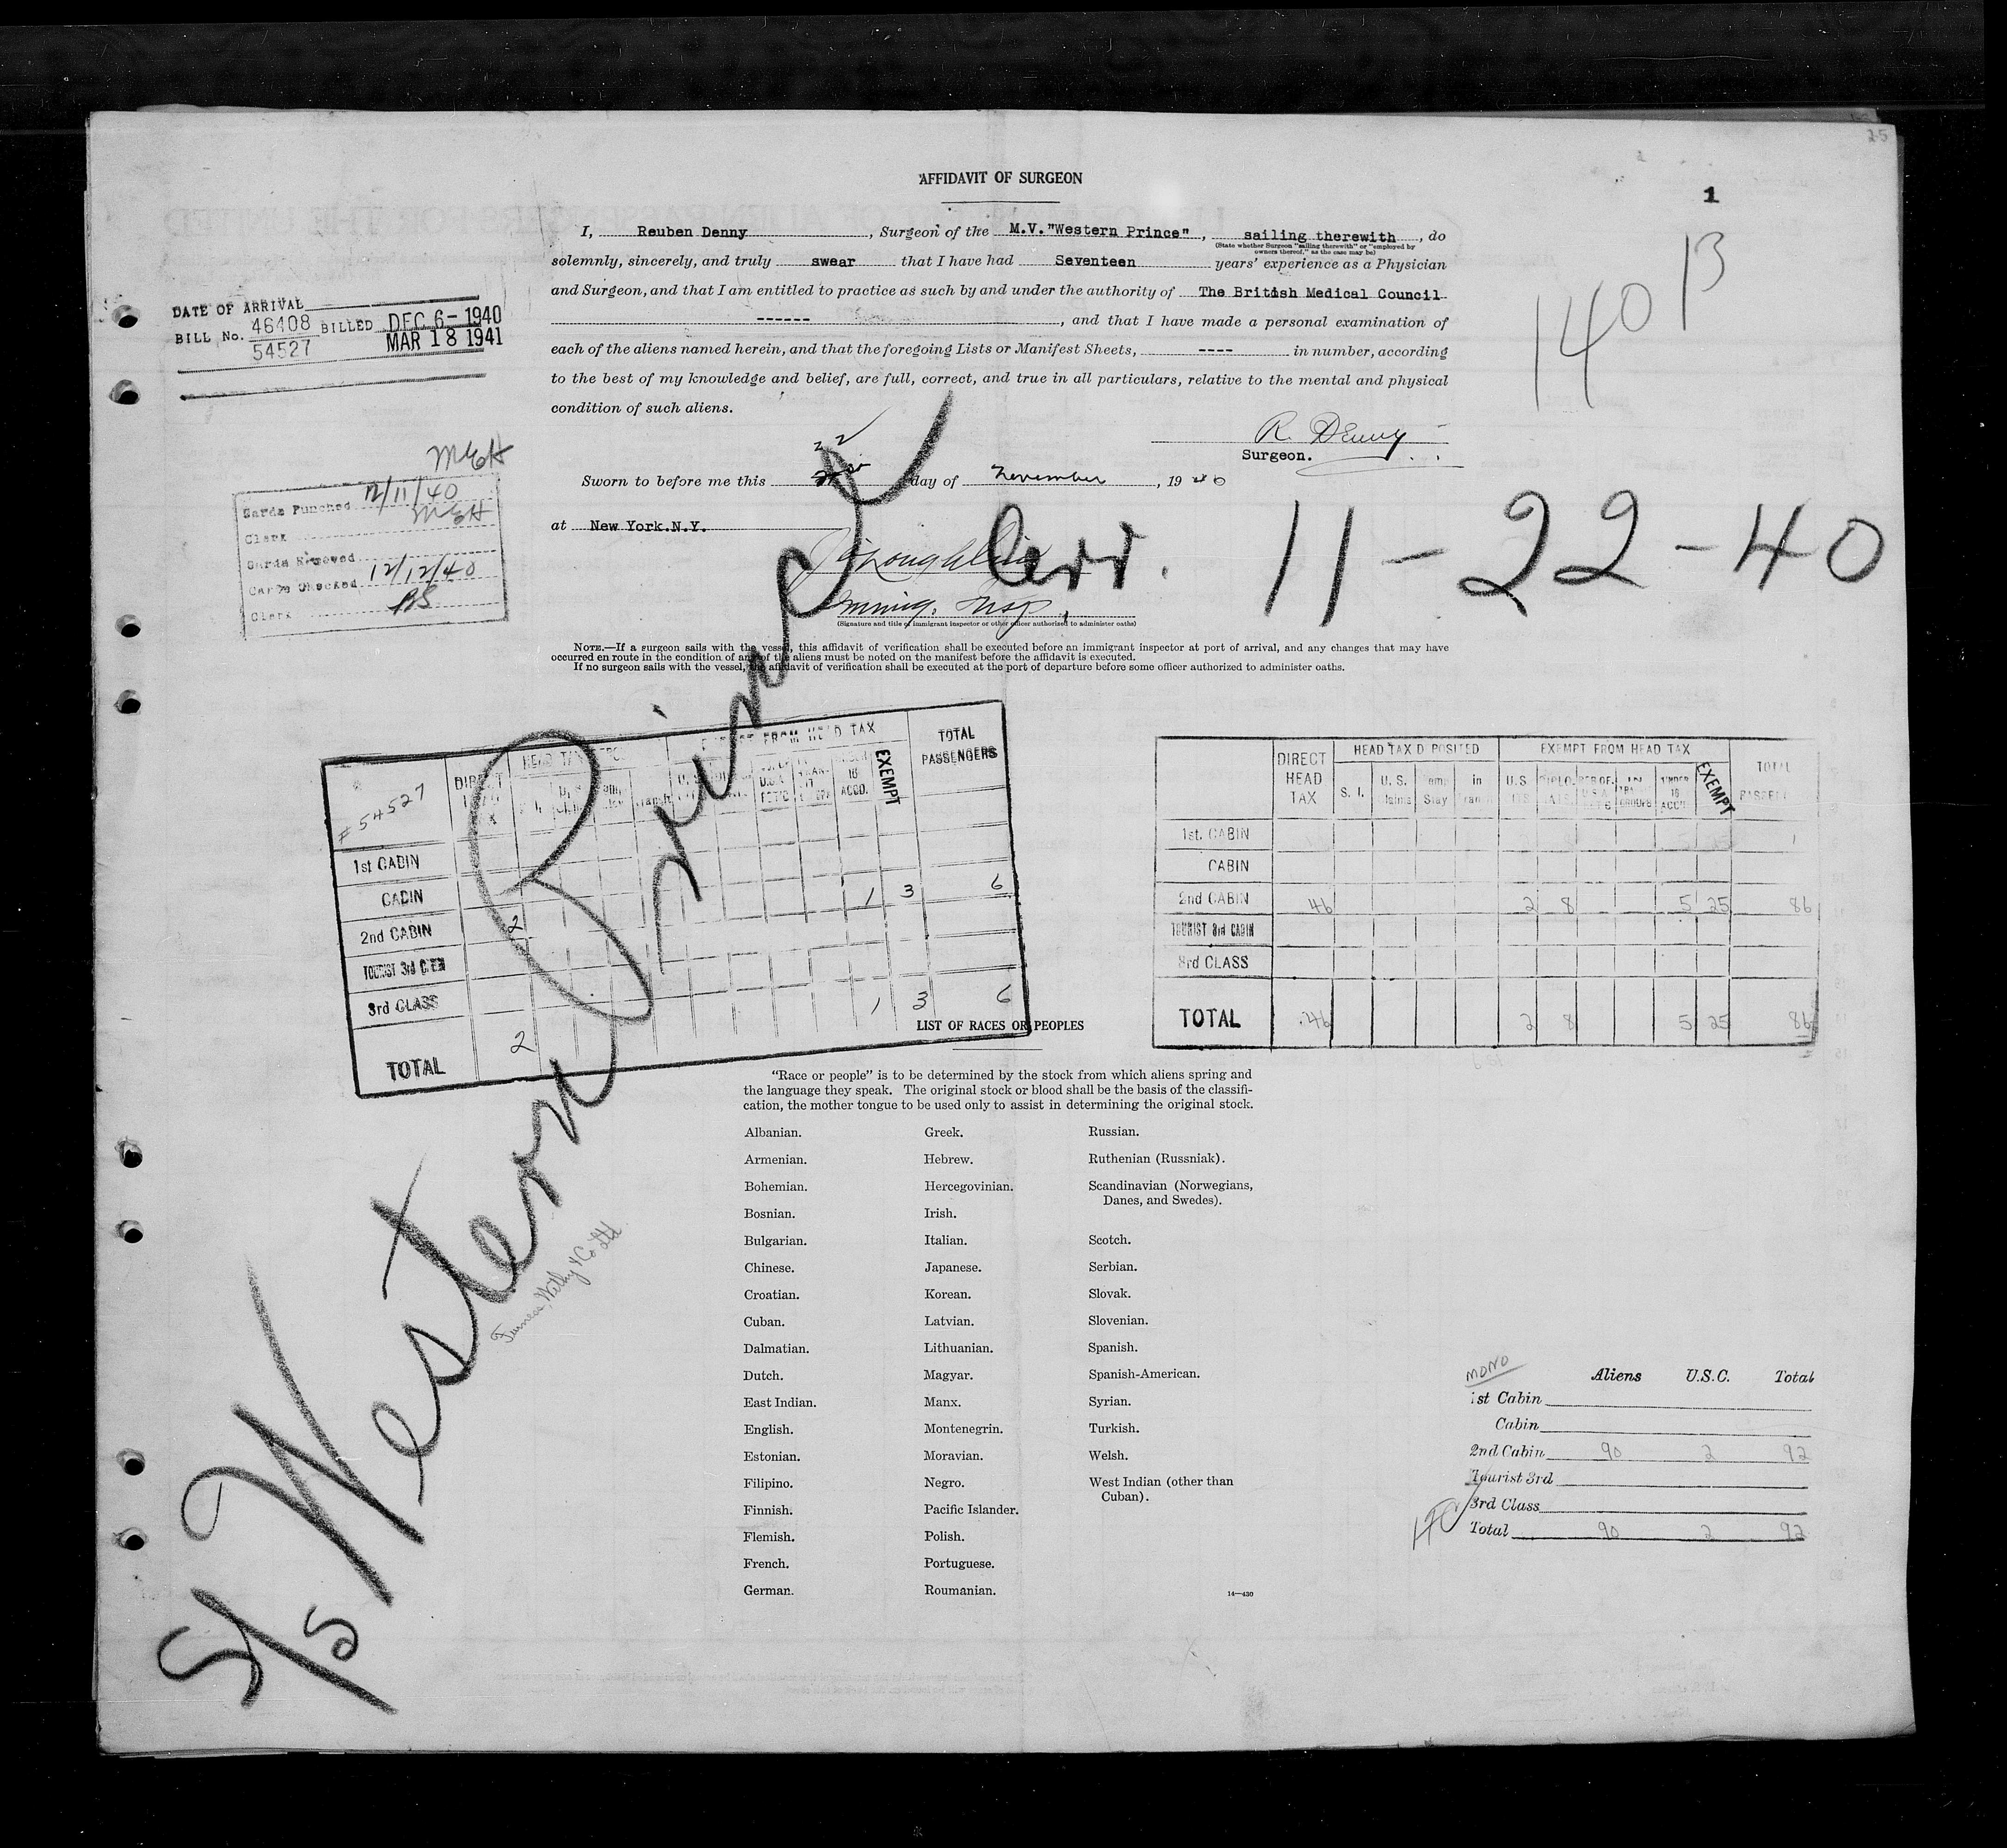 25
AFFIDAVIT OF SURGEON
1
13
140
I, Reuben Denny, Surgeon of the M.V."Western Prince", sailing therewith, do
(State whether Surgeon "sailing therewith" or "employed by
owners thereof," as the case may be)
solemnly, sincerely, and truly swear that I have had Seventeen years' experience as a Physician
and Surgeon, and that I am entitled to practice as such by and under the authority of The British Medical Council
------, and that I have made a personal examination of
each of the aliens named herein, and that the foregoing Lists or Manifest Sheets, ---- in number, according
to the best of my knowledge and belief, are full, correct, and true in all particulars, relative to the mental and physical
condition of such aliens.
DATE OF ARRIVAL
BILL No. 46408 BILLED DEC 6- 1940
54527 MAR 18 1941
R. Denny
Surgeon.
22
Sworn to before me this day of November, 1940
at New York.N.Y.
McLoughlin
Immig. Insp.
(Signature and title of immigrant inspector or other officer authorized to administer oaths)
MEH
Cards Punched 12/11/40
Clerk MEH
Cards Removed
Cards Checked 12/12/40
Clerk BS
arr. 11-22-40
NOTE.—If a surgeon sails with the vessel, this affidavit of verification shall be executed before an immigrant inspector at port of arrival, and any changes that may have
occurred en route in the condition of any of the aliens must be noted on the manifest before the affidavit is executed.
If no surgeon sails with the vessel, the affidavit of verification shall be executed at the port of departure before some officer authorized to administer oaths.
S/S Western Prince
Furness, Withy & Co Ltd
# 54527
DIRECT HEAD TAX EXEMPT FROM HEAD TAX TOTAL PASSENGERS
U.S.A. 16 ACCD. EXEMPT
1st CABIN
CABIN 1 3 6
2nd CABIN 2
TOURIST 3rd CABIN
3rd CLASS 1 3 6
TOTAL 2
DIRECT HEAD TAX HEAD TAX D POSITED EXEMPT FROM HEAD TAX TOTAL
S. I. U. S. Claims Temp Stay in Trans U.S. DIPLO. GROUPS UNDER 16 ACC'D EXEMPT
1st. CABIN 1
CABIN
2nd CABIN 46 2 8 5 25 86
TOURIST 3rd CABIN
3rd CLASS
TOTAL 46 2 8 5 25 86
LIST OF RACES OR PEOPLES
"Race or people" is to be determined by the stock from which aliens spring and
the language they speak. The original stock or blood shall be the basis of the classifi-
cation, the mother tongue to be used only to assist in determining the original stock.
Albanian. Greek. Russian.
Armenian. Hebrew. Ruthenian (Russniak).
Bohemian. Hercegovinian. Scandinavian (Norwegians,
Danes, and Swedes).
Bosnian. Irish.
Bulgarian. Italian. Scotch.
Chinese. Japanese. Serbian.
Croatian. Korean. Slovak.
Cuban. Latvian. Slovenian.
Dalmatian. Lithuanian. Spanish.
Dutch. Magyar. Spanish-American.
East Indian. Manx. Syrian.
English. Montenegrin. Turkish.
Estonian. Moravian. Welsh.
Filipino. Negro. West Indian (other than
Cuban).
Finnish. Pacific Islander.
Flemish. Polish.
French. Portuguese.
German. Roumanian.
14—430
MONO
Aliens U.S.C. Total
1st Cabin
Cabin
2nd Cabin 90 2 92
Tourist 3rd
3rd Class
Total 90 2 92
140